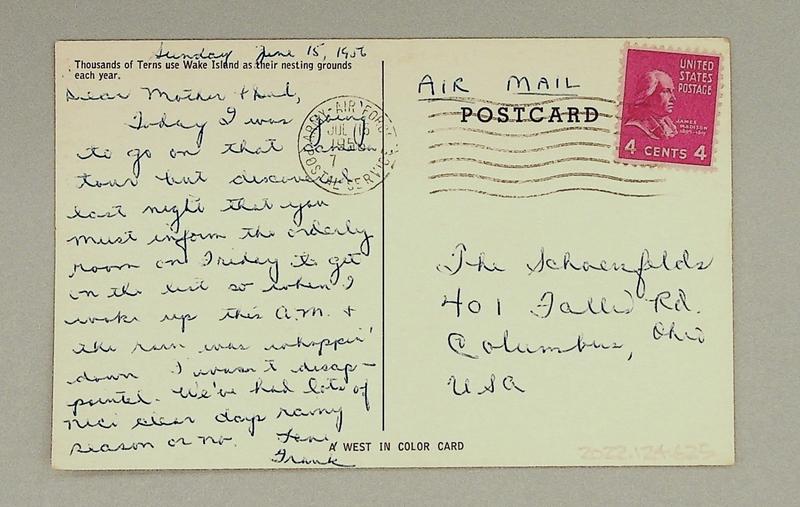 Sunday June 15, 1956
Thousands of Terns use Wake Island as their nesting grounds
each year.
Dear Mother & Dad,
Today I was going
to go on that
tour but discovered
last night that you
must inform the orderly
room on Friday to get
on the list so when I
woke up this A.M. &
the rain was whoppin'
down I wasn't disap-
pointed. We've had lots of
nice clear days rainy
season or no. Love
Frank
ARMY-AIR FORCE
POSTAL SERVICE
JUL 16
7
AIR MAIL
POSTCARD
UNITED
STATES
POSTAGE
JAMES
MADISON
4 CENTS 4
The Schoenfelds
401 Fallis Rd.
Columbus, Ohio
USA
A WEST IN COLOR CARD
2022.124.625